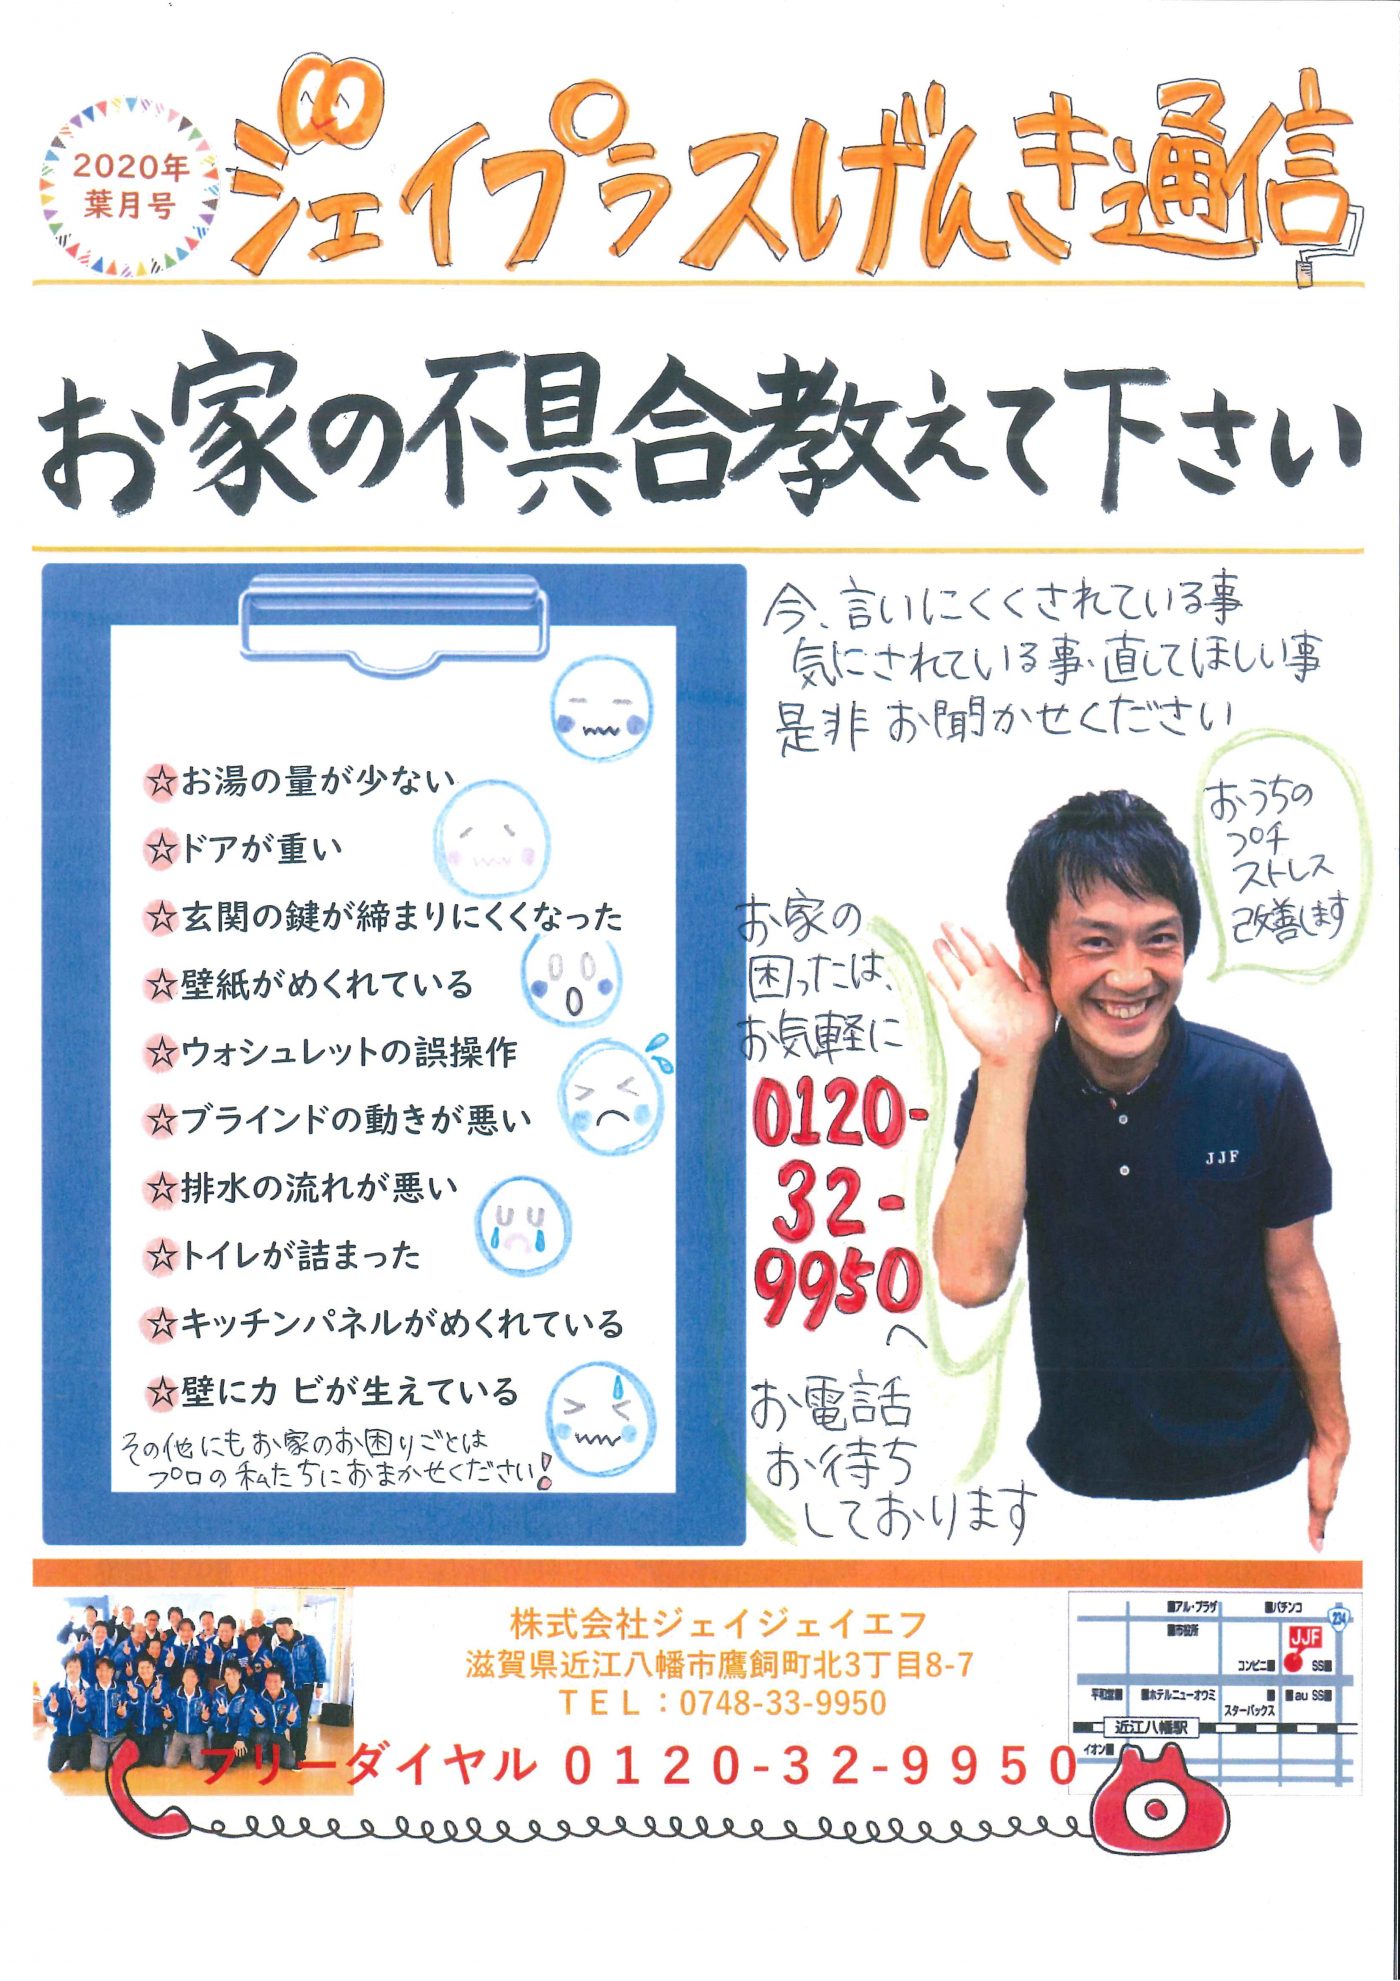 2020年
葉月号
ジェイプラスげんき通信
お家の不具合教えて下さい
今、言いにくくされている事
気にされている事、直してほしい事
是非お聞かせください
おうちの
プチ
ストレス
改善します
☆お湯の量が少ない
☆ドアが重い
☆玄関の鍵が締まりにくくなった
☆壁紙がめくれている
☆ウォシュレットの誤操作
☆ブラインドの動きが悪い
☆排水の流れが悪い
☆トイレが詰まった
☆キッチンパネルがめくれている
☆壁にカ ビが生えている
その他にもお家のお困りごとは
プロの私たちにおまかせください!
お家の
困ったは、
お気軽に
0120-
32-
9950
へ
お電話
お待ち
しております
JJF
株式会社ジェイジェイエフ
滋賀県近江八幡市鷹飼町北3丁目8-7
TEL：0748-33-9950
フリーダイヤル 0120-32-9950
■アル・プラザ ■パチンコ
234
■市役所
JJF
コンビニ■ SS■
平和堂■ ■ホテルニューオウミ ■ ■au SS■
スターバックス
近江八幡駅
イオン■